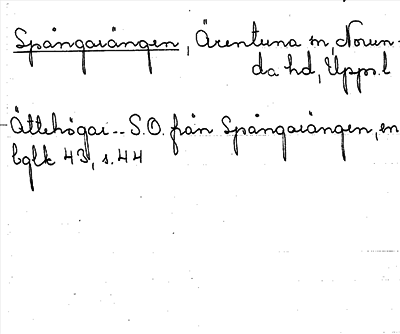 Spångaiängen, Ärentuna sn, Norun-
da hd, Upps. l
Ättehögar -- S.O. från Spångaiängen, en
bglk 43, s. 44